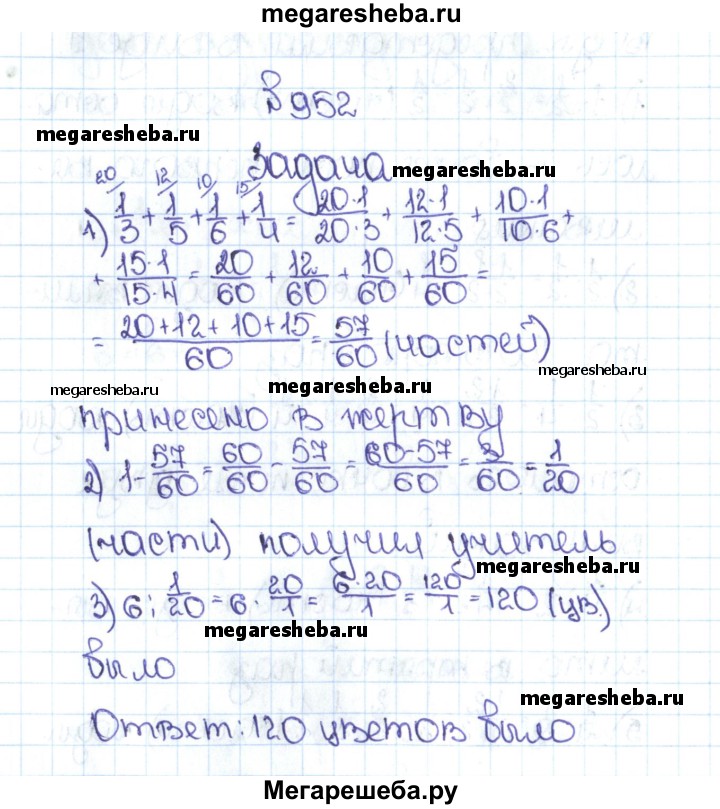 megaresheba.ru
№952
megaresheba.ru
Задача megaresheba.ru
20/ 12/ 10/ 15/
1) 1/3 + 1/5 + 1/6 + 1/4 = 20·1/20·3 + 12·1/12·5 + 10·1/10·6 +
+ 15·1/15·4 = 20/60 + 12/60 + 10/60 + 15/60 =
= 20+12+10+15/60 = 57/60 (частей)
megaresheba.ru
megaresheba.ru megaresheba.ru
принесено в жертву
2) 1 - 57/60 = 60/60 - 57/60 = 60-57/60 = 3/60 = 1/20
(части) получил учитель
megaresheba.ru
3) 6 : 1/20 = 6 · 20/1 = 6·20/1 = 120/1 = 120 (цв.)
megaresheba.ru
было
megaresheba.ru
Ответ: 120 цветов было
Мегарешеба.ру